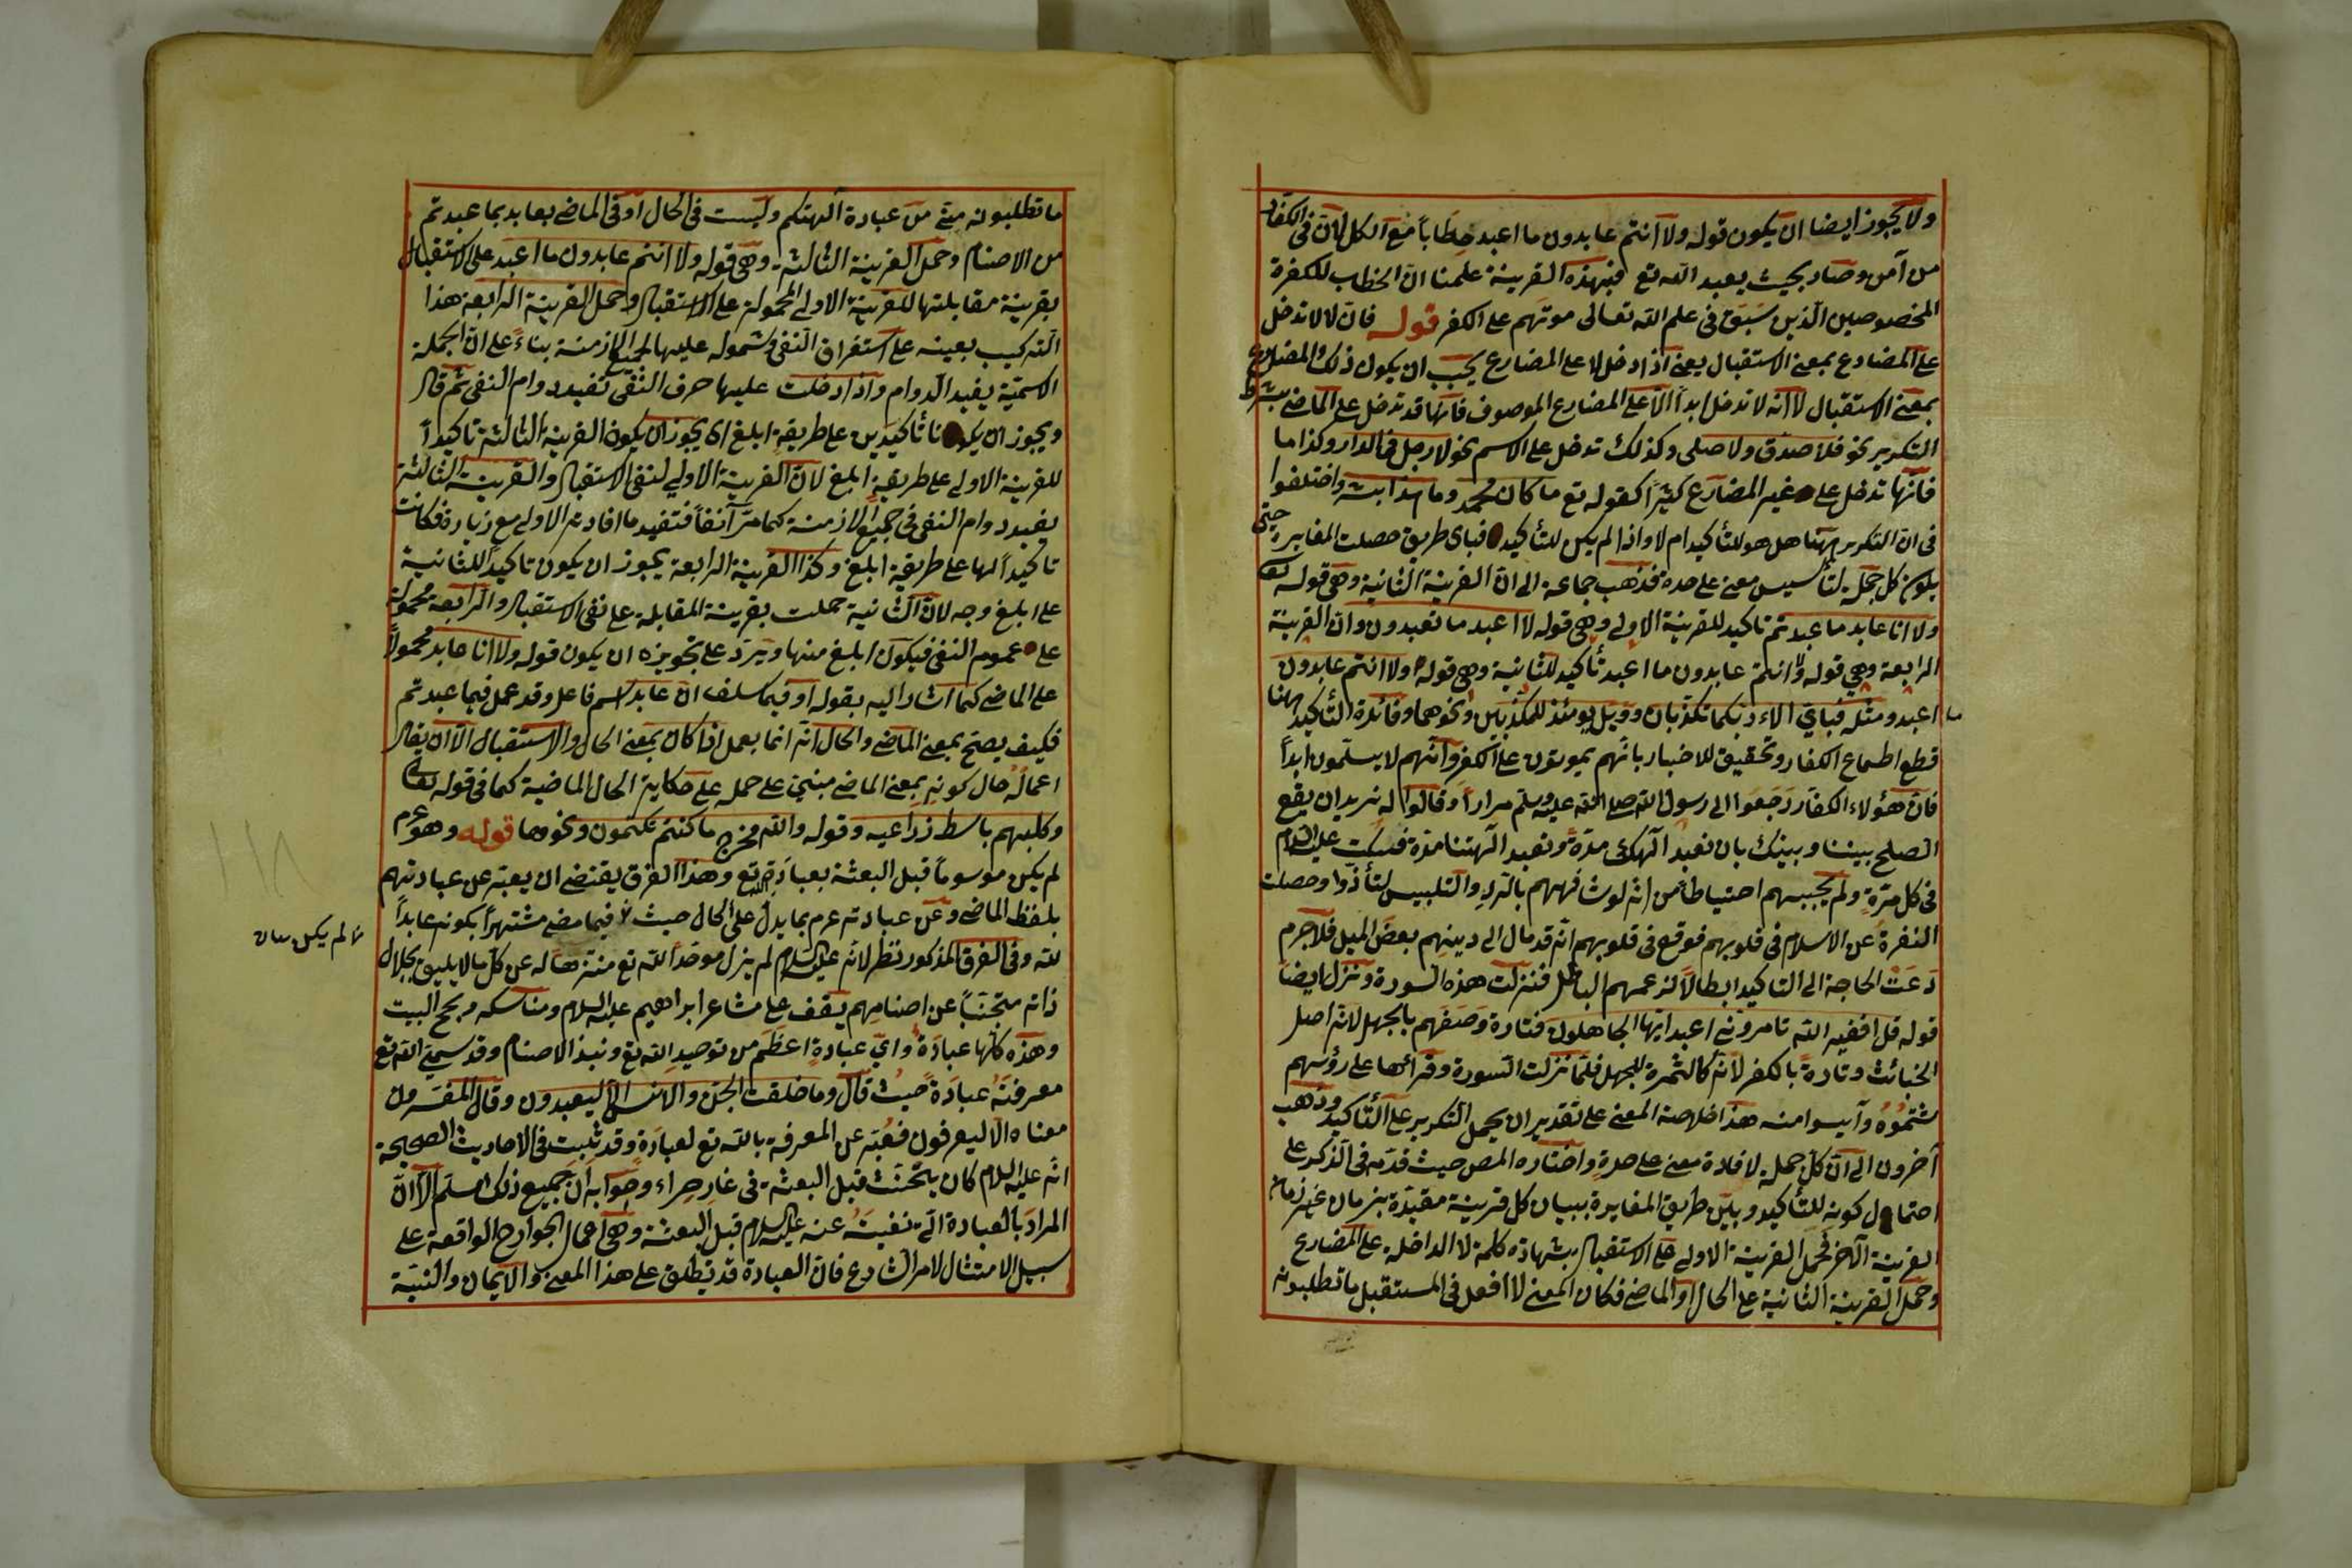 ولا يجوز ايضا ان يكون قوله ولا انتم عابدون ما اعبد خطاباً مع الكل لان فى الكفار
من آمن وصار بحيث يعبد الله تع فبهذه القرينة علمنا انّ الخطاب للكفرة
المخصوصين الذين سَبَقَ فى علم الله تعالى موتهم على الكفر قوله فان لا لا تدخل
على المضارع بمعنى الاستقبال يعنى اذا دخل لا على المضارع يجب ان يكون ذلك المضارع
بمعنى الاستقبال لا انه لا تدخل ابداً الّا على المضارع الموصوف فانها قد تدخل على الماضى بشرط
التكرير نحو فلا صدّق ولا صلى وكذلك تدخل على الاسم نحو لا رجل فى الدار وكذا ما
فانها تدخل على غير المضارع كثيراً كقوله تع ما كان محمد وما هذا بشر واختلفوا
فى ان التكرير ههنا هل هو للتأكيد ام لا واذا لم يكن للتأكيد فباى طريق حصلت المغايرة حتى
يكون كل جملة لتأسيس معنى على حدة فذهب جماعة الى ان القرينة الثانية وهى قوله تعا
ولا انا عابد ما عبدتم تاكيد للقرينة الاولى وهى قوله لا اعبد ما تعبدون وان القرينة
الرابعة وهى قوله ولا انتم عابدون ما اعبد تأكيد للثانية وهى قوله ولا انتم عابدون
ما اعبد ومثله فباى الاء ربكما تكذبان وويل يومئذ للمكذبين ونحوهما وفائدة التأكيد ههنا
قطع اطماع الكفار وتحقيق للاخبار بانهم يموتون على الكفر وانهم لا يسلمون ابداً
فان هؤلاء الكفار رجعوا الى رسول الله صلى الله عليه وسلم مراراً وقالوا له نريد ان يقع
الصلح بيننا وبينك بان نعبد آلهك مدة وتعبد آلهتنا مدة فسكت عليه السلام
فى كل مرّة ولم يجبهم احتياطاً من انه لو شافههم بالرد والتلبيس لتأذّوا وحصلت
النفرة عن الاسلام فى قلوبهم فوقع فى قلوبهم انه قد مال الى دينهم بعض الميل فلا جرم
دعت الحاجة الى التاكيد ابطالاً لزعمهم الباطل فنزلت هذه السورة ونزل ايضا
قوله قل افغير الله تامرونى اعبد ايها الجاهلون فتارة وصفهم بالجهل لانه اصل
الخبائث وتارة بالكفر لانه كالثمرة للجهل فلما نزلت السورة وقرأها على رؤسهم
شتموه وآيسوا منه هذا خلاصة المعنى على تقدير ان يحمل التكرير على التأكيد وذهب
آخرون الى ان كل جملة لافادة معنى على حدة واختاره المص حيث قدّمه فى الذكر على
احتمال كونه للتأكيد وبيّن طريق المغايرة ببيان كل قرينة مقيدة بزمان غير زمان
القرينة الآخر فحمل القرينة الاولى على الاستقبال بشهادة كلمة لا الداخلة على المضارع
وحمل القرينة الثانية على الحال او الماضى فكان المعنى لا افعل فى المستقبل ما تطلبونه
ما تطلبونه منّى من عبادة آلهتكم ولست فى الحال او فى الماضى بعابد بما عبدتم
من الاصنام وحمل القرينة الثالثة وهى قوله ولا انتم عابدون ما اعبد على الاستقبال
بقرينة مقابلتها للقرينة الاولى المحمولة على الاستقبال وحمل القرينة الرابعة هذا
التركيب بعينه على استغراق النفى وشموله عليها لجميع الازمنة بناءً على ان الجملة
الاسميّة يفيد الدوام واذا دخلت عليها حرف النفى تفيد دوام النفى ثم قال
ويجوز ان يكونا تأكيدين على طريقة ابلغ اى يجوز ان يكون القرينة الثالثة تاكيداً
للقرينة الاولى على طريقة ابلغ لان القرينة الاولى لنفى الاستقبال والقرينة الثالثة
يفيد دوام النفى فى جميع الازمنة كما مرّ آنفاً فتفيد ما افادته الاولى مع زيادة فكانت
تاكيداً لها على طريقة ابلغ وكذا القرينة الرابعة يجوز ان يكون تاكيداً للثانية
على ابلغ وجه لان الثانية حملت بقرينة المقابلة على نفى الاستقبال والرابعة محمولة
على عموم النفى فيكون ابلغ منها ويرد على تجويزه ان يكون قوله ولا انا عابد محمولاً
على الماضى كما اشار اليه بقوله او فيما سلف ان عابد اسم فاعل وقد عمل فيما عبدتم
فكيف يصح بمعنى الماضى والحال انه انما يعمل اذا كان بمعنى الحال والاستقبال الّا ان يقال
اعماله حال كونه بمعنى الماضى مبنىّ على حمله على حكاية الحال الماضية كما فى قوله تعا
وكلبهم باسط ذراعيه وقوله والله مخرج ما كنتم تكتمون ونحوهما قوله وهو عم
لم يكن موسوماً قبل البعثة بعبادة الله تع وهذا الفرق يقتضى ان يعبّر عن عبادتهم
بلفظ الماضى وعن عبادته عم بما يدل على الحال حيث لا فيما مضى مشتهراً بكونه عابداً
لم يكن
لله وفى الفرق المذكور نظر لانه عليه السلام لم يزل موحّداً لله تع منزها له عن كل ما لا يليق بجلال
ذاته متجنّباً عن اصنامهم يقف على مشاعر ابراهيم عليه السلام ومناسكه ويحج البيت
وهذه كلها عبادة واىّ عبادة اعظم من توحيد الله تع ونبذ الاصنام وقد سمى الله تع
معرفته عبادة حيث قال وما خلقت الجن والانس الّا ليعبدون وقال المفسرون
معناه الّا ليعرفون فعبّر عن المعرفة بالله تع لعبادة وقد ثبت فى الاحاديث الصحيحة
انه عليه السلام كان يتحنّث قبل البعثة فى غار حراء وجوابه أن جميع ذلك مسلم الّا انّ
المراد بالعبادة التى نفيت عنه عليه السلام قبل البعثة وهى اعمال الجوارح الواقعة على
سبيل الامتثال لامر الشارع فان العبادة قد تطلق على هذا المعنى والايمان والنيّة